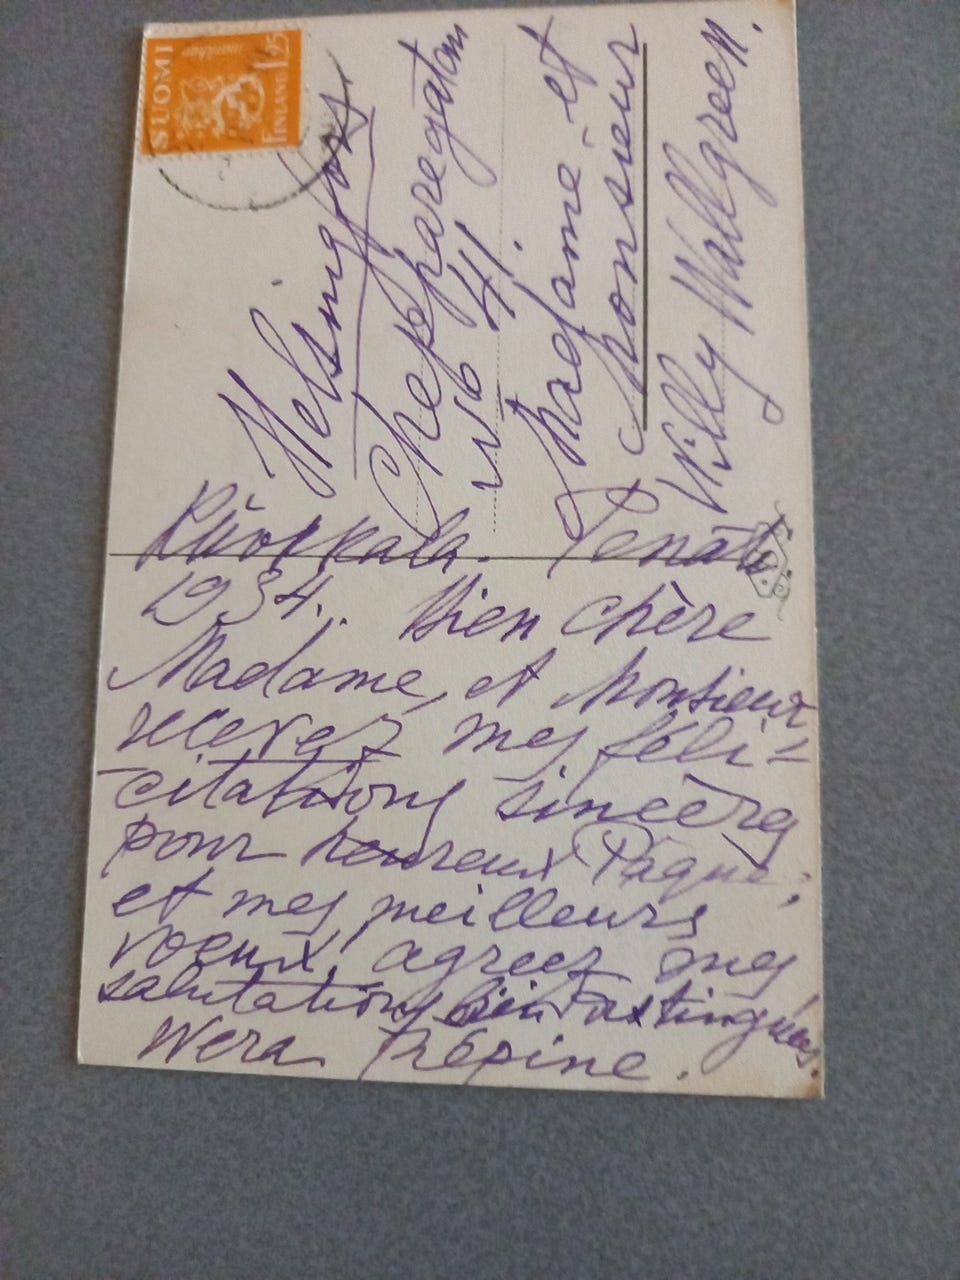 SUOMI
markkaa
1 25
FINLAND
Helsingfors
Chepparegatan
No 41.
Madame et
Monsieur
Willy Wallgreen.
Kuokkala. Penati
1934. Bien chère
Madame, et Monsieur
recevez mes féli=
citations sincères
pour heureux Pâque;
et mes meilleurs
voeux, agreez mes
salutations bien distingués.
Wera Répine.